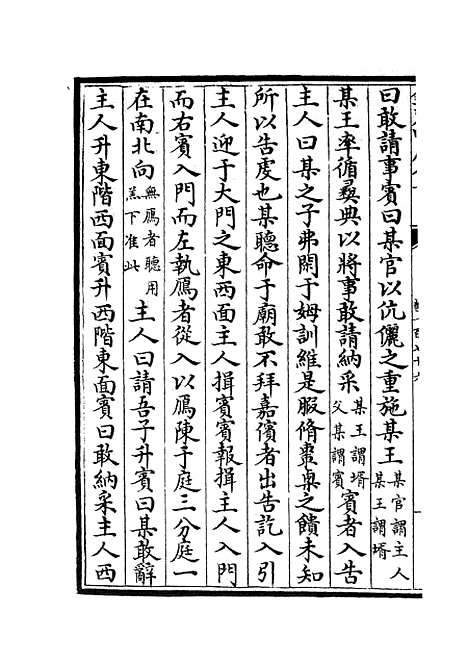 曰敢請事賓曰某官以伉儷之重施某王某官謂主人某王謂壻
某王率循彞典以將事敢請納采某王謂壻父某謂賓賓者入告
主人曰某之子弗閑于姆訓維是服脩棗㮚之饋未知
所以告虔也某聽命于廟敢不拜嘉儐者出告訖入引
主人迎于大門之東西面主人揖賓賓報揖主人入門
而右賓入門而左執鴈者從入以鴈陳于庭三分庭一
在南北向無鴈者聽用羔下准此主人曰請吾子升賓曰某敢辭
主人升東階西面賓升西階東面賓曰敢納采主人西